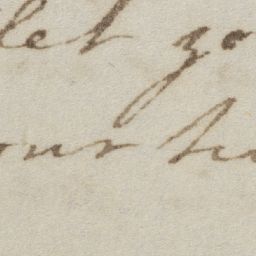 let yo
our h